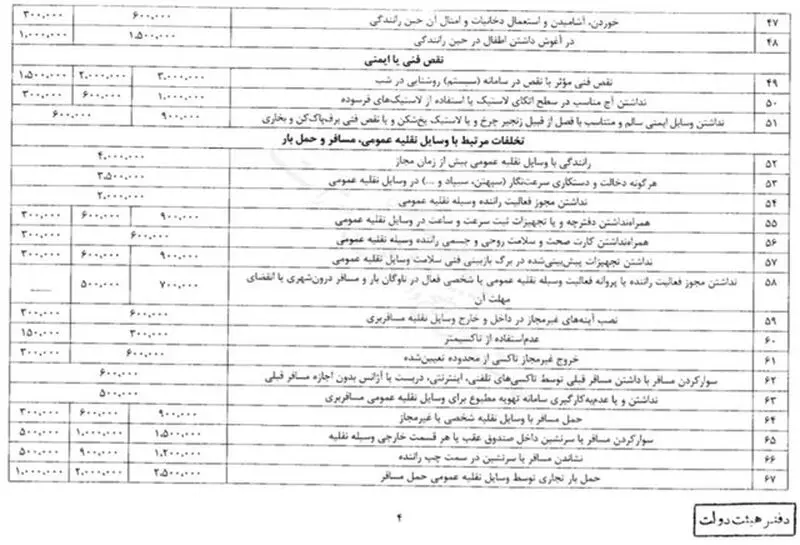 ۴۷ خوردن، آشامیدن و استعمال دخانیات و امثال آن حین رانندگی ۶۰۰,۰۰۰ ۳۰۰,۰۰۰
۴۸ در آغوش داشتن اطفال در حین رانندگی ۱,۵۰۰,۰۰۰ ۱,۰۰۰,۰۰۰
نقص فنی یا ایمنی
۴۹ نقص فنی مؤثر یا نقص در سامانه (سیستم) روشنایی در شب ۳,۰۰۰,۰۰۰ ۲,۰۰۰,۰۰۰ ۱,۵۰۰,۰۰۰
۵۰ نداشتن آج مناسب در سطح اتکای لاستیک یا استفاده از لاستیک‌های فرسوده ۱,۰۰۰,۰۰۰ ۶۰۰,۰۰۰ ۳۰۰,۰۰۰
۵۱ نداشتن وسایل ایمنی سالم و متناسب با فصل از قبیل زنجیر چرخ و یا لاستیک یخ‌شکن و یا نقص فنی برف‌پاک‌کن و بخاری ۹۰۰,۰۰۰ ۶۰۰,۰۰۰
تخلفات مرتبط با وسایل نقلیه عمومی، مسافر و حمل بار
۵۲ رانندگی با وسایل نقلیه عمومی بیش از زمان مجاز ۴,۰۰۰,۰۰۰
۵۳ هرگونه دخالت و دستکاری سرعت‌نگار (سپهتن، سیباد و ...) در وسایل نقلیه عمومی ۳,۵۰۰,۰۰۰
۵۴ نداشتن مجوز فعالیت راننده وسیله نقلیه عمومی ۲,۰۰۰,۰۰۰
۵۵ همراه‌نداشتن دفترچه و یا تجهیزات ثبت سرعت و ساعت در وسایل نقلیه عمومی ۹۰۰,۰۰۰ ۶۰۰,۰۰۰ ۳۰۰,۰۰۰
۵۶ همراه‌نداشتن کارت صحت و سلامت روحی و جسمی راننده وسیله نقلیه عمومی ۶۰۰,۰۰۰ ۳۰۰,۰۰۰
۵۷ نداشتن تجهیزات پیش‌بینی‌شده در برگ بازبینی فنی سلامت وسایل نقلیه عمومی ۹۰۰,۰۰۰ ۶۰۰,۰۰۰ ۳۰۰,۰۰۰
۵۸ نداشتن مجوز فعالیت راننده یا پروانه فعالیت وسیله نقلیه عمومی یا شخصی فعال در ناوگان بار و مسافر درون‌شهری یا انقضای ۷۰۰,۰۰۰ ۵۰۰,۰۰۰
مهلت آن
۵۹ نصب آینه‌های غیرمجاز در داخل و خارج وسایل نقلیه مسافربری ۶۰۰,۰۰۰ ۳۰۰,۰۰۰
۶۰ عدم‌استفاده از تاکسیمتر ۳۰۰,۰۰۰ ۱۵۰,۰۰۰
۶۱ خروج غیرمجاز تاکسی از محدوده تعیین‌شده ۶۰۰,۰۰۰ ۳۰۰,۰۰۰
۶۲ سوارکردن مسافر با داشتن مسافر قبلی توسط تاکسی‌های تلفنی، اینترنتی، دربست یا آژانس بدون اجازه مسافر قبلی ۶۰۰,۰۰۰
۶۳ نداشتن و یا عدم‌به‌کارگیری سامانه تهویه مطبوع برای وسایل نقلیه عمومی مسافربری ۵۰۰,۰۰۰
۶۴ حمل مسافر با وسایل نقلیه شخصی یا غیرمجاز ۹۰۰,۰۰۰ ۶۰۰,۰۰۰ ۳۰۰,۰۰۰
۶۵ سوارکردن مسافر یا سرنشین داخل صندوق عقب یا هر قسمت خارجی وسیله نقلیه ۱,۵۰۰,۰۰۰ ۱,۰۰۰,۰۰۰ ۵۰۰,۰۰۰
۶۶ نشاندن مسافر یا سرنشین در سمت چپ راننده ۱,۲۰۰,۰۰۰ ۹۰۰,۰۰۰ ۵۰۰,۰۰۰
۶۷ حمل بار تجاری توسط وسایل نقلیه عمومی حمل مسافر ۲,۵۰۰,۰۰۰ ۲,۰۰۰,۰۰۰ ۱,۰۰۰,۰۰۰
۴
دفتر هیئت دولت